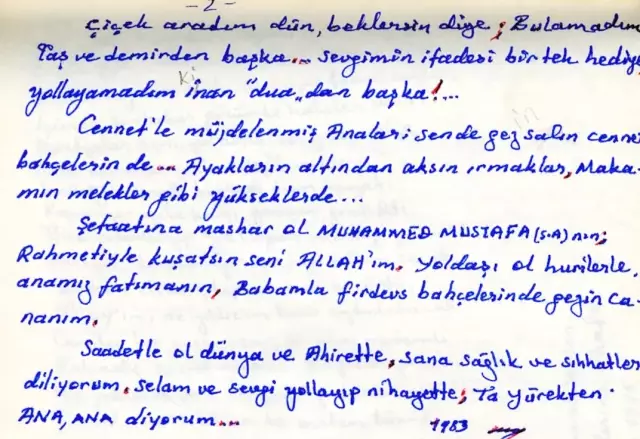 - 2 -
Çiçek aradım dün, beklersin diye; Bulamadım
Taş ve demirden başka... sevgimin ifadesi bir tek hediye
yollayamadım ki inan "dua„dan başka!...
Cennet'le müjdelenmiş Anaları sende gez salın cennet
bahçelerin de... Ayakların altından aksın ırmaklar, Maka-
mın melekler gibi yükseklerde...
Şefaatına mashar ol MUHAMMED MUSTAFA (S.A) nın;
Rahmetiyle kuşatsın seni ALLAH'ım. Yoldaşı ol hurilerle,
anamız fatımanın, Babamla firdevs bahçelerinde gezin Ca-
nanım.
Saadetle ol dünya ve Ahirette, sana sağlık ve sıhhatler
diliyorum, selam ve sevgi yollayıp nihayette; Ta yürekten
ANA, ANA diyorum...
1983